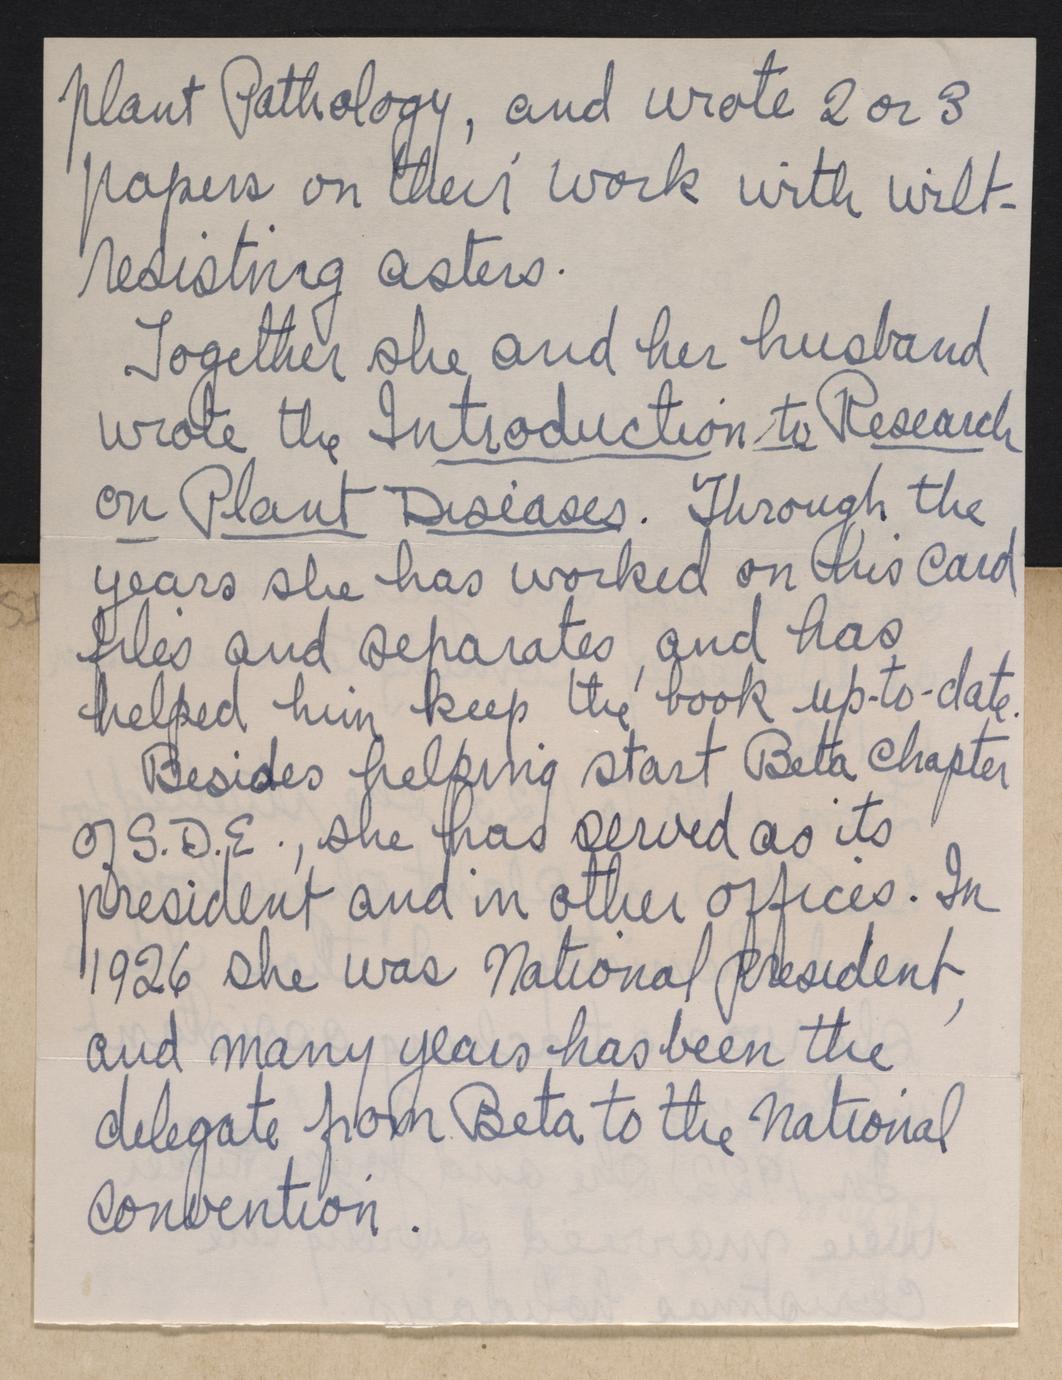 plant Pathology, and wrote 2 or 3
papers on their work with wilt-
resisting asters.
Together she and her husband
wrote the Introduction to Research
on Plant Diseases. Through the
years she has worked on his card
files and separates, and has
helped him keep the book up-to-date.
Besides helping start Beta Chapter
of S.D.E., she has served as its
president and in other offices. In
1926 she was National president,
and many years has been the
delegate from Beta to the National
Convention.